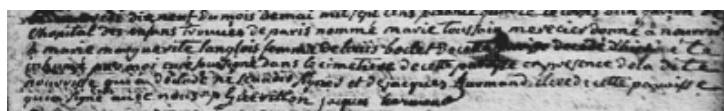 dix neuf du mois de mai mil sept cens soixante quatre le corps d'un garçon
l'hopital des enfans trouvés de paris nommé marie toussain mercier donné a nourrir
a marie marguerite langlois femme de louis boclet de cette paroisse décédé d'hier a été
inhumé par moi curé soussigné dans le cimetiere de cette paroisse en presence de la dite
nourrisse qui a déclaré ne scavoir signer et de jacques harmand clerc de cette paroisse
qui a signé avec nous jacques harmand